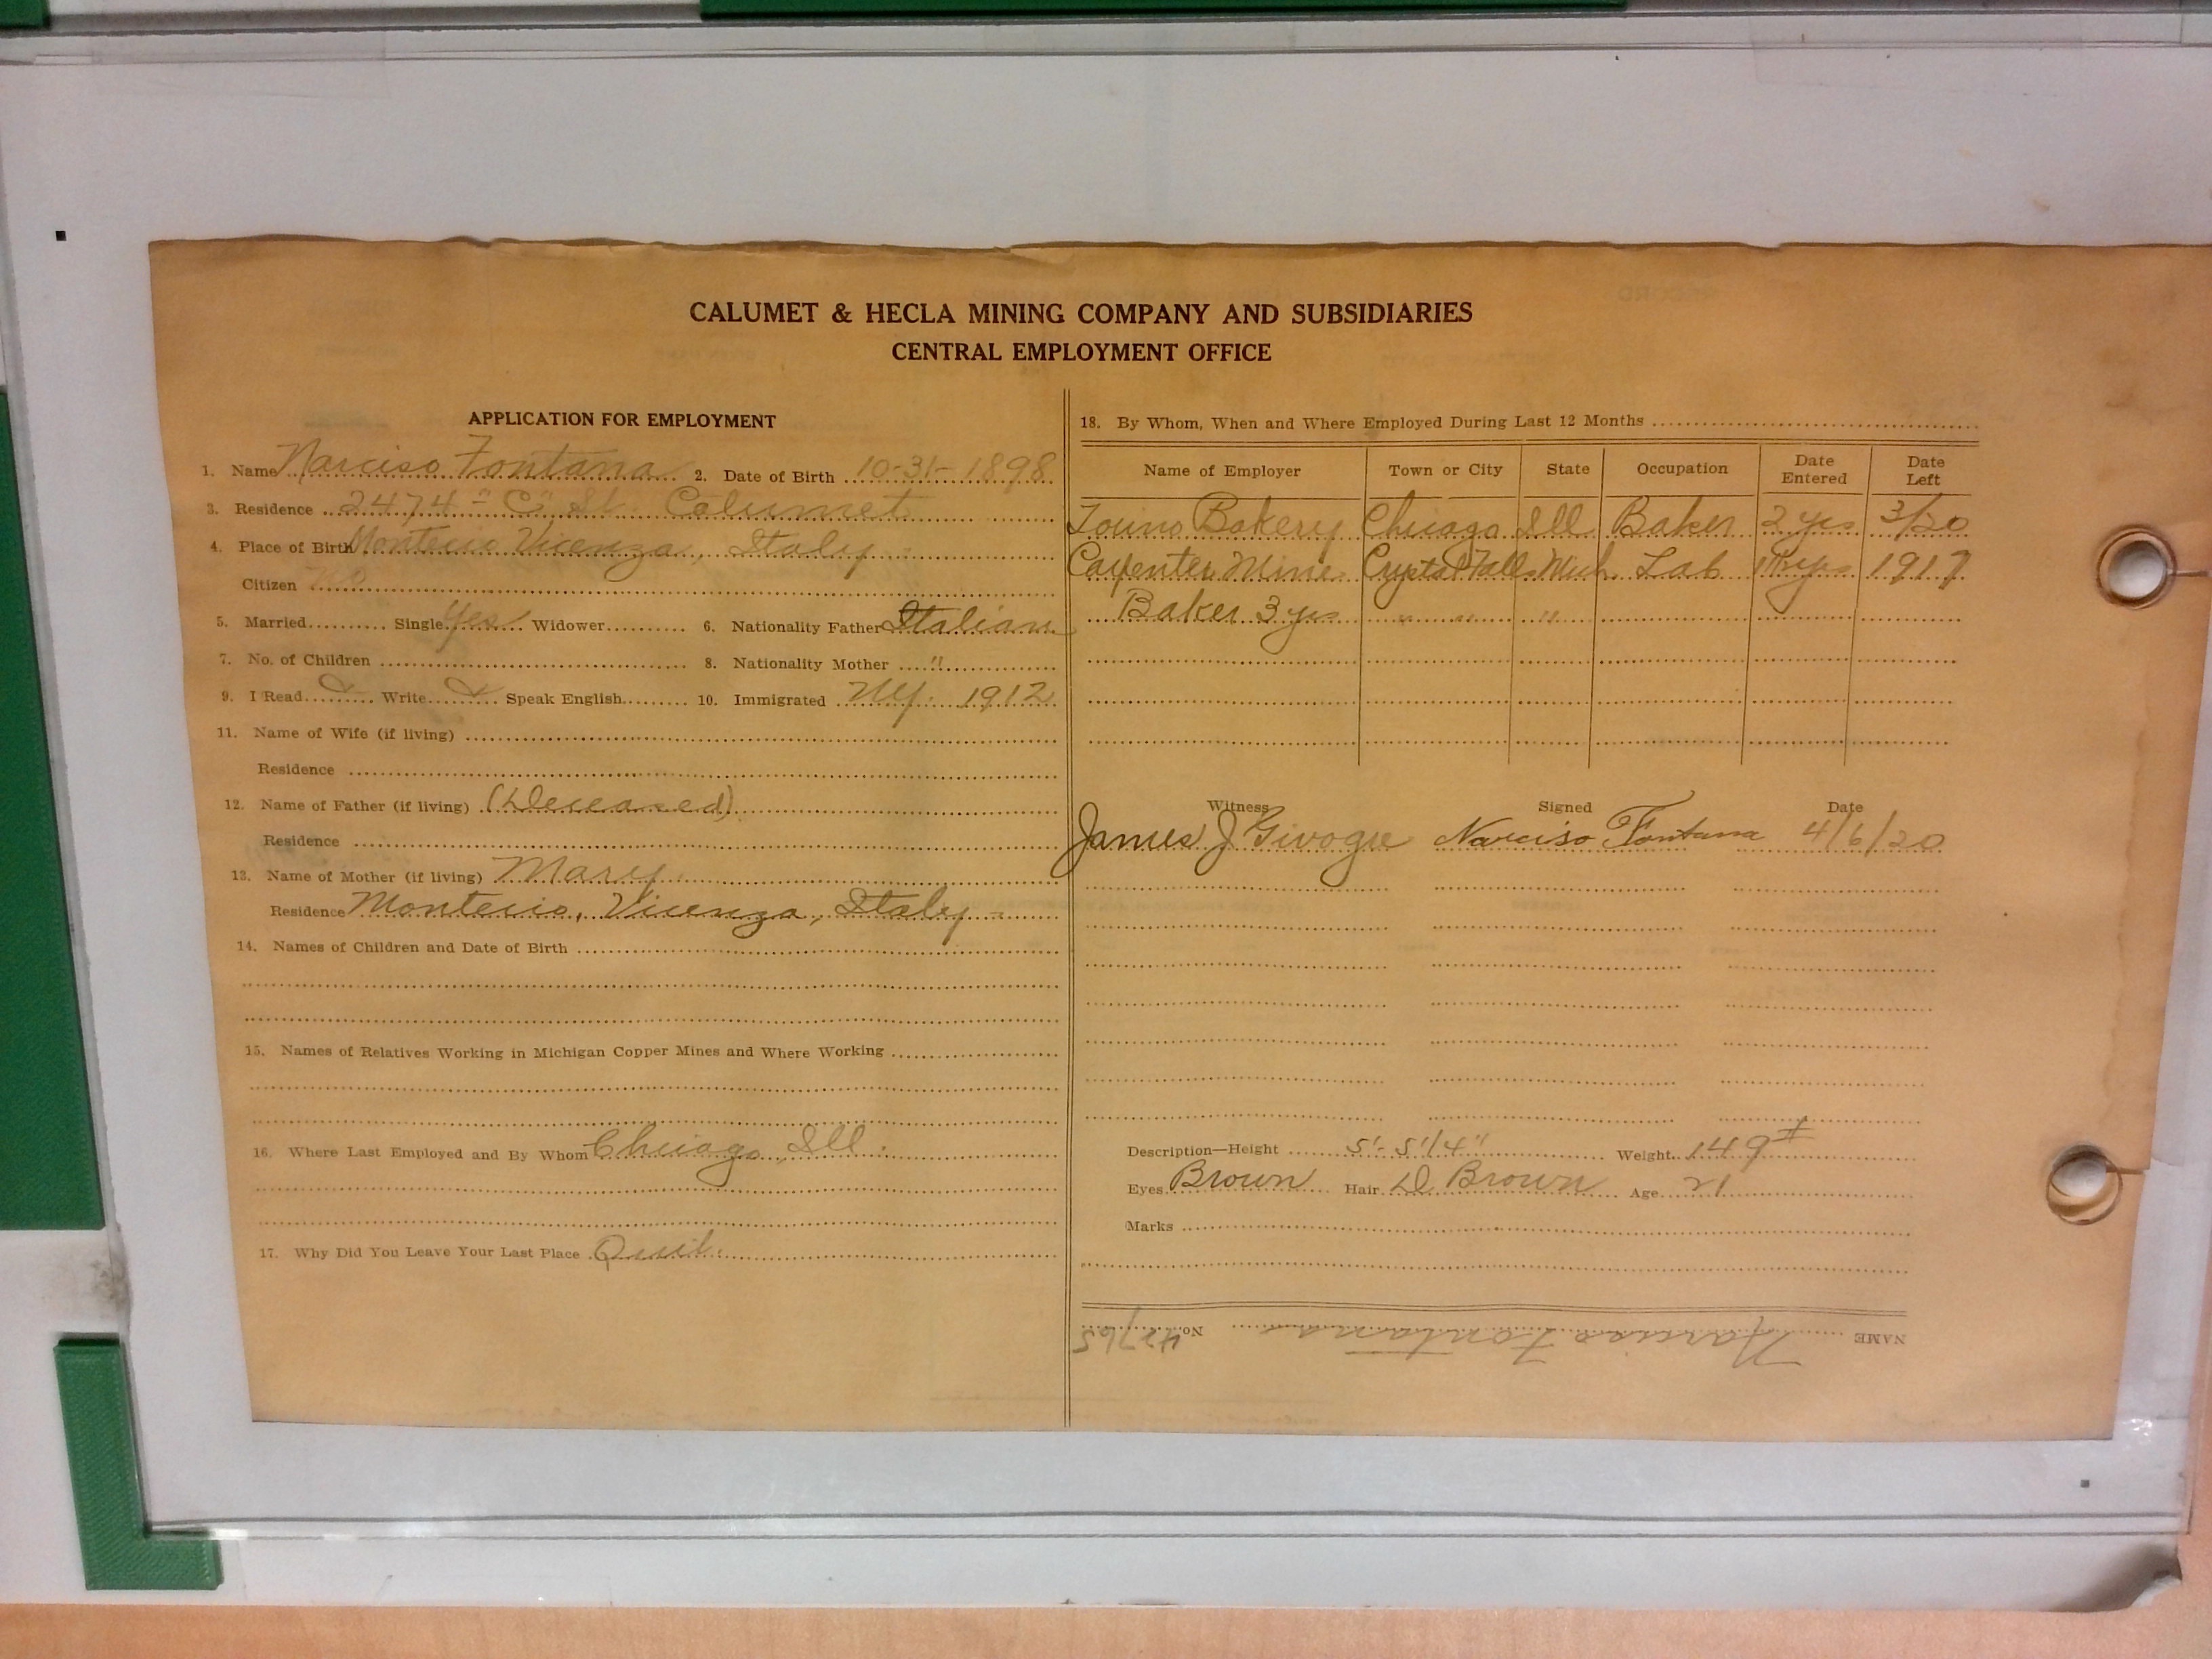 CALUMET & HECLA MINING COMPANY AND SUBSIDIARIES
CENTRAL EMPLOYMENT OFFICE
APPLICATION FOR EMPLOYMENT
1. Name Narciso Fontana 2. Date of Birth 10-31-1898
3. Residence 2474 "C" St. Calumet
4. Place of Birth Montecio Vicenza, Italy
Citizen No
5. Married Single Yes Widower 6. Nationality Father Italian
7. No. of Children 8. Nationality Mother "
9. I Read Write Speak English 10. Immigrated NY. 1912
11. Name of Wife (if living)
Residence
12. Name of Father (if living) (Deceased)
Residence
13. Name of Mother (if living) Mary
Residence Montecio, Vicenza, Italy
14. Names of Children and Date of Birth
15. Names of Relatives Working in Michigan Copper Mines and Where Working
16. Where Last Employed and By Whom Chicago, Ill.
17. Why Did You Leave Your Last Place Quit.
18. By Whom, When and Where Employed During Last 12 Months
Name of Employer Town or City State Occupation Date Entered Date Left
Bakery Chicago Ill Baker 2 yrs 3/20
Carpenter Mine Crystal Falls Mich Lab 1917
Baker 3 yrs " " "
Witness Signed Date
James J Narciso Fontana 4/6/20
Description—Height 5'-5 1/4" Weight 149#
Eyes Brown Hair D. Brown Age 21
Marks
NAME Narciso Fontana No. 42765